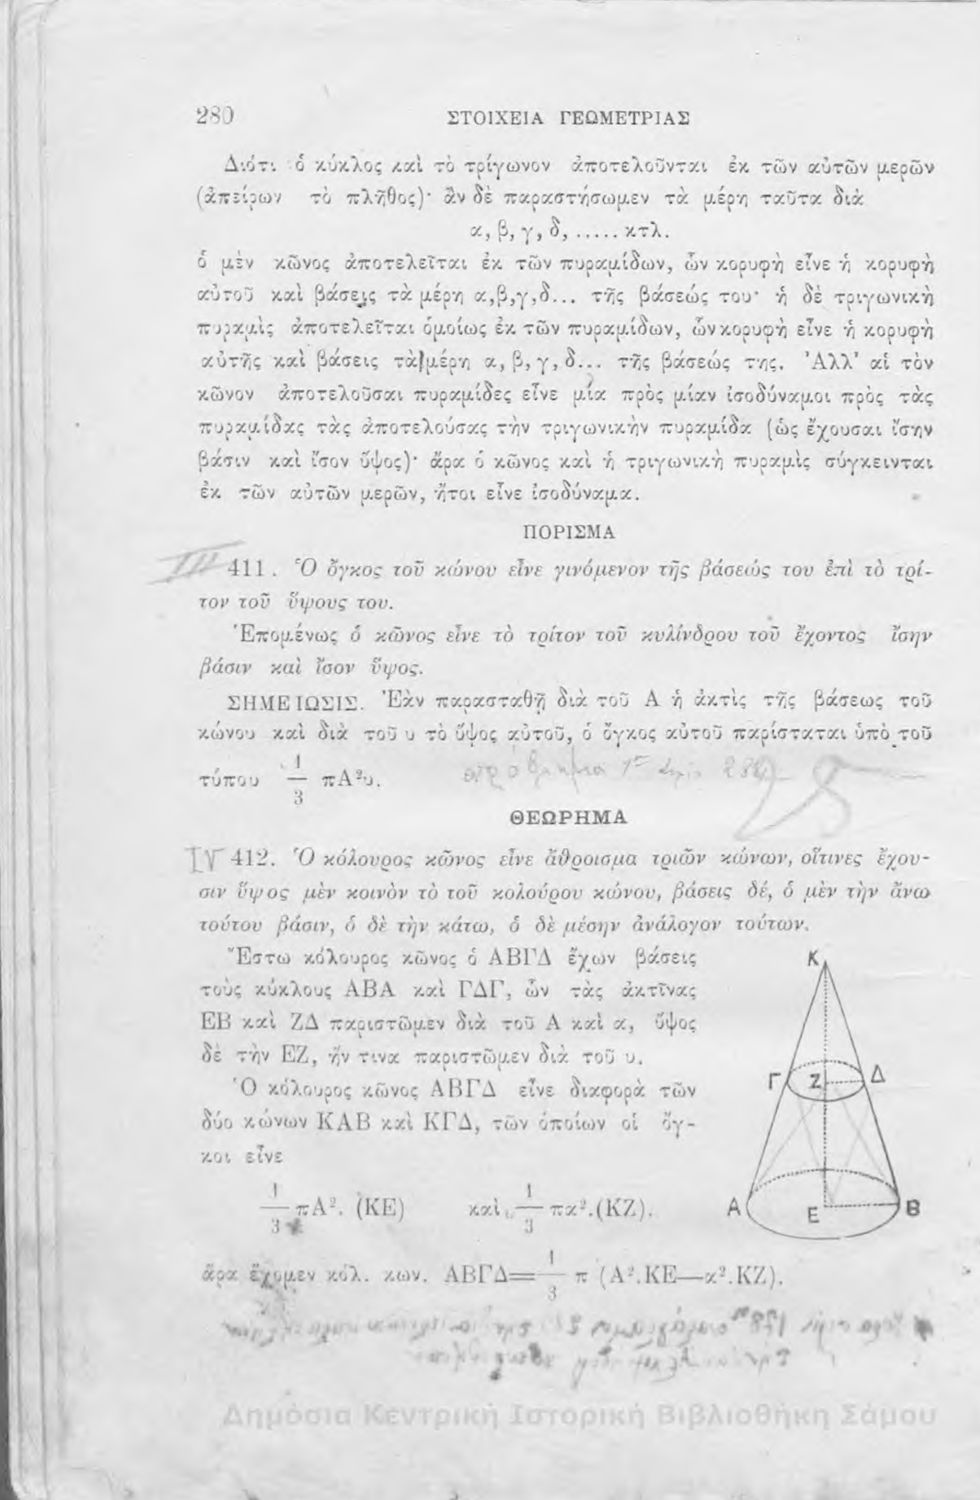 280 ΣΤΟΙΧΕΙΑ ΓΕΩΜΕΤΡΙΑΣ
Διότι ὁ κύκλος καὶ τὸ τρίγωνον ἀποτελοῦνται ἐκ τῶν αὐτῶν μερῶν
(ἀπείρων τὸ πλῆθος)· ἂν δὲ παραστήσωμεν τὰ μέρη ταῦτα διὰ
α, β, γ, δ, ..... κτλ.
ὁ μὲν κῶνος ἀποτελεῖται ἐκ τῶν πυραμίδων, ὧν κορυφὴ εἶνε ἡ κορυφὴ
αὐτοῦ καὶ βάσεις τὰ μέρη α,β,γ,δ... τῆς βάσεώς του· ἡ δὲ τριγωνικὴ
πυραμὶς ἀποτελεῖται ὁμοίως ἐκ τῶν πυραμίδων, ὧν κορυφὴ εἶνε ἡ κορυφὴ
αὐτῆς καὶ βάσεις τὰ μέρη α, β, γ, δ... τῆς βάσεώς της. Ἀλλ' αἱ τὸν
κῶνον ἀποτελοῦσαι πυραμίδες εἶνε μία πρὸς μίαν ἰσοδύναμοι πρὸς τὰς
πυραμίδας τὰς ἀποτελούσας τὴν τριγωνικὴν πυραμίδα (ὡς ἔχουσαι ἴσην
βάσιν καὶ ἴσον ὕψος)· ἄρα ὁ κῶνος καὶ ἡ τριγωνικὴ πυραμὶς σύγκεινται
ἐκ τῶν αὐτῶν μερῶν, ἤτοι εἶνε ἰσοδύναμα.
ΠΟΡΙΣΜΑ
III 411. Ὁ ὄγκος τοῦ κώνου εἶνε γινόμενον τῆς βάσεώς του ἐπὶ τὸ τρί-
τον τοῦ ὕψους του.
Ἑπομένως ὁ κῶνος εἶνε τὸ τρίτον τοῦ κυλίνδρου τοῦ ἔχοντος ἴσην
βάσιν καὶ ἴσον ὕψος.
ΣΗΜΕΙΩΣΙΣ. Ἐὰν παρασταθῇ διὰ τοῦ Α ἡ ἀκτὶς τῆς βάσεως τοῦ
κώνου καὶ διὰ τοῦ υ τὸ ὕψος αὐτοῦ, ὁ ὄγκος αὐτοῦ παρίσταται ὑπὸ τοῦ
τύπου 1/3 πΑ²υ.
ΘΕΩΡΗΜΑ
IV 412. Ὁ κόλουρος κῶνος εἶνε ἄθροισμα τριῶν κώνων, οἵτινες ἔχου-
σιν ὕψος μὲν κοινὸν τὸ τοῦ κολούρου κώνου, βάσεις δέ, ὁ μὲν τὴν ἄνω
τούτου βάσιν, ὁ δὲ τὴν κάτω, ὁ δὲ μέσην ἀνάλογον τούτων.
Ἔστω κόλουρος κῶνος ὁ ΑΒΓΔ ἔχων βάσεις
τοὺς κύκλους ΑΒΑ καὶ ΓΔΓ, ὧν τὰς ἀκτῖνας
ΕΒ καὶ ΖΔ παριστῶμεν διὰ τοῦ Α καὶ α, ὕψος
δὲ τὴν ΕΖ, ἥν τινα παριστῶμεν διὰ τοῦ υ.
Ὁ κόλουρος κῶνος ΑΒΓΔ εἶνε διαφορὰ τῶν
δύο κώνων ΚΑΒ καὶ ΚΓΔ, τῶν ὁποίων οἱ ὄγ-
κοι εἶνε
1/3 πΑ². (ΚΕ) καὶ 1/3 πα².(ΚΖ).
ἄρα ἔχομεν κόλ. κων. ΑΒΓΔ=1/3 π (Α².ΚΕ—α².ΚΖ).
Κ
Γ Ζ Δ
Α Ε Β
Δημόσια Κεντρική Ιστορική Βιβλιοθήκη Σάμου